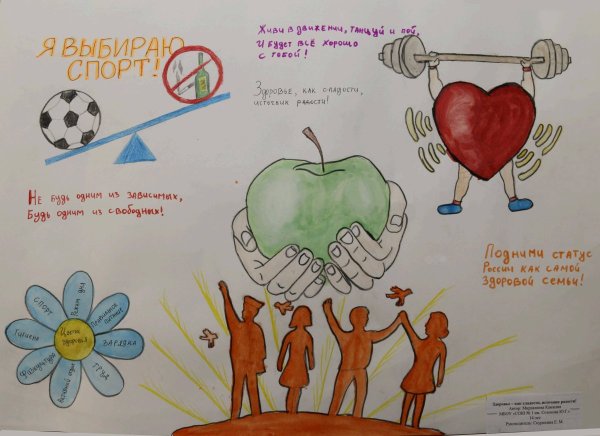 Я ВЫБИРАЮ
СПОРТ!
Живи в движении, танцуй и пой,
И будет всё хорошо
с тобой!
Здоровье, как сладости,
источник радости!
Не будь одним из зависимых,
Будь одним из свободных!
Подними статус
России как самой
здоровой семьи!
Режим дня
Правильное
питание
ЗАРЯДКА
ТРУД
Активный отдых
Физкультура
Гигиена
СПОРТ
Цветок
здоровья
Здоровье – как сладости, источник радости!
Автор:
14 лет
Руководитель: